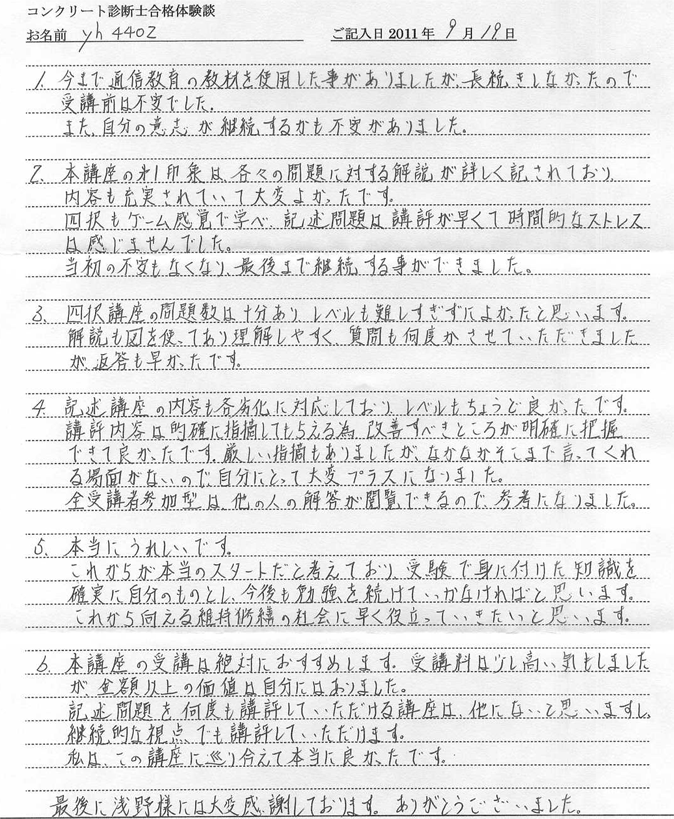 コンクリート診断士合格体験談
お名前 yh4402 ご記入日 2011年 9月19日
1. 今まで通信教育の教材を使用した事がありましたが、長続きしなかったので
受講前は不安でした。
また、自分の意志が継続するかも不安がありました。
2. 本講座の第1印象は、各々の問題に対する解説が詳しく記されており
内容も充実されていて大変よかったです。
四択もゲーム感覚で学べ、記述問題は講評が早くて時間的なストレス
は感じませんでした。
当初の不安もなくなり、最後まで継続する事ができました。
3. 四択講座の問題数は十分あり、レベルも難しすぎずによかったと思います。
解説も図を使ってあり理解しやすく、質問も何度かさせていただきました
が返答も早かったです。
4. 記述講座の内容も各劣化に対応しており、レベルもちょうど良かったです。
講評内容は的確に指摘してもらえる為、改善すべきところが明確に把握
できて良かったです。厳しい指摘もありましたが、なかなかそこまで言ってくれ
る場面がないので、自分にとって大変プラスになりました。
全受講者参加型は、他の人の解答が閲覧できるので、参考になりました。
5. 本当にうれしいです。
これからが本当のスタートだと考えており、受験で身に付けた知識を
確実に自分のものとし、今後も勉強を続けていかなければと思います。
これから向える維持修繕の社会に早く役立っていきたいと思います。
6. 本講座の受講は絶対におすすめします。受講料は少し高い気もしました
が金額以上の価値は自分にはありました。
記述問題を何度も講評していただける講座は、他にないと思いますし、
継続的な視点でも講評していただけます。
私は、この講座に巡り合えて本当に良かったです。
最後に浅野様には大変感謝しております。ありがとうございました。